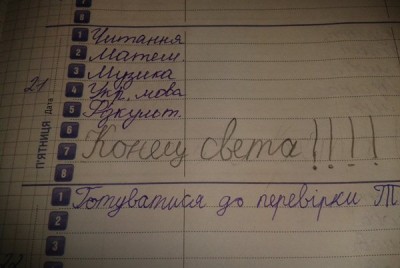 8
1 Читання
2 Матем.
3 Музика
4 Укр. мова
5 Фізкульт.
6
7 Конец света!!!!
8
21
Дата
П'ЯТНИЦЯ
1 Готуватися до перевірки Т
2
3
22